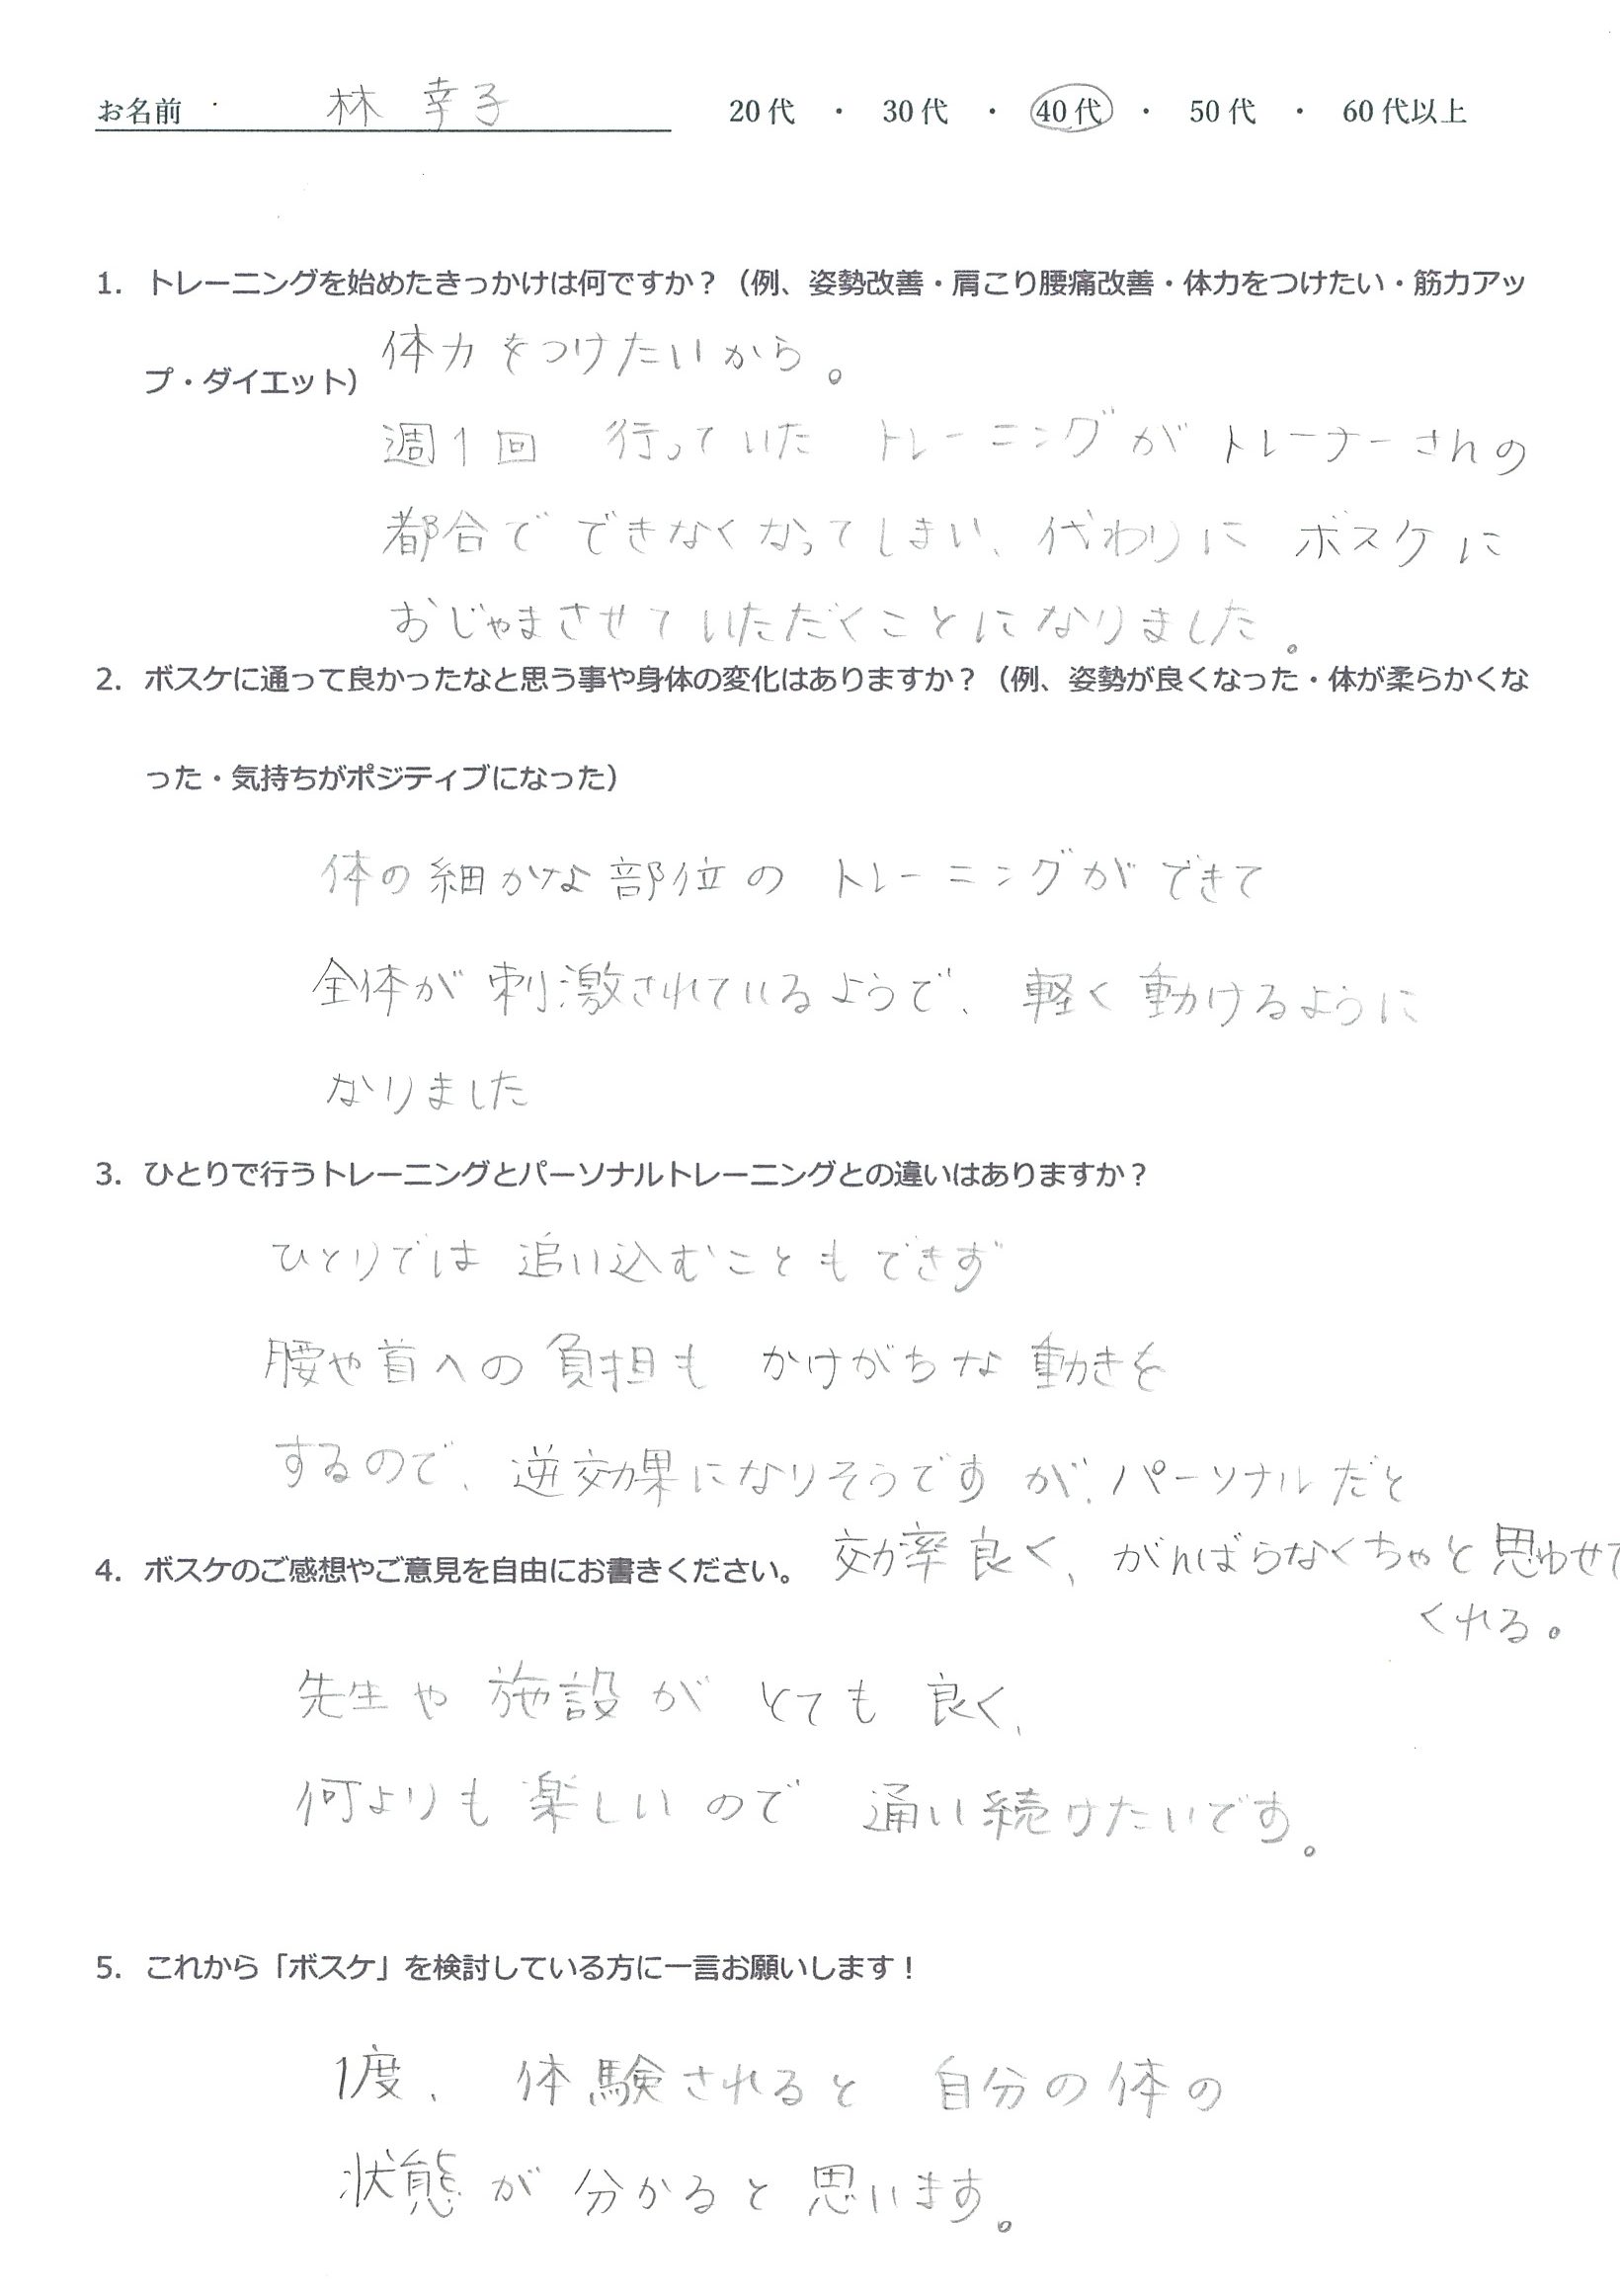 お名前 林 幸子 20代 ・ 30代 ・ 40代 ・ 50代 ・ 60代以上
1. トレーニングを始めたきっかけは何ですか？（例、姿勢改善・肩こり腰痛改善・体力をつけたい・筋力アッ
プ・ダイエット）
体力をつけたいから。
週1回 行っていた トレーニングが トレーナーさんの
都合で できなくなってしまい、代わりに ボスケに
おじゃまさせていただくことになりました。
2. ボスケに通って良かったなと思う事や身体の変化はありますか？（例、姿勢が良くなった・体が柔らかくな
った・気持ちがポジティブになった）
体の細かな部位の トレーニングができて
全体が刺激されているようで、軽く動けるように
なりました
3. ひとりで行うトレーニングとパーソナルトレーニングとの違いはありますか？
ひとりでは 追い込むこともできず
腰や首への負担も かけがちな動きを
するので、逆効果になりそうですが、パーソナルだと
効率良く、がんばらなくちゃと思わせて
くれる。
4. ボスケのご感想やご意見を自由にお書きください。
先生や施設が とても 良く、
何よりも楽しいので 通い続けたいです。
5. これから「ボスケ」を検討している方に一言お願いします！
1度、体験されると 自分の体の
状態が分かると思います。